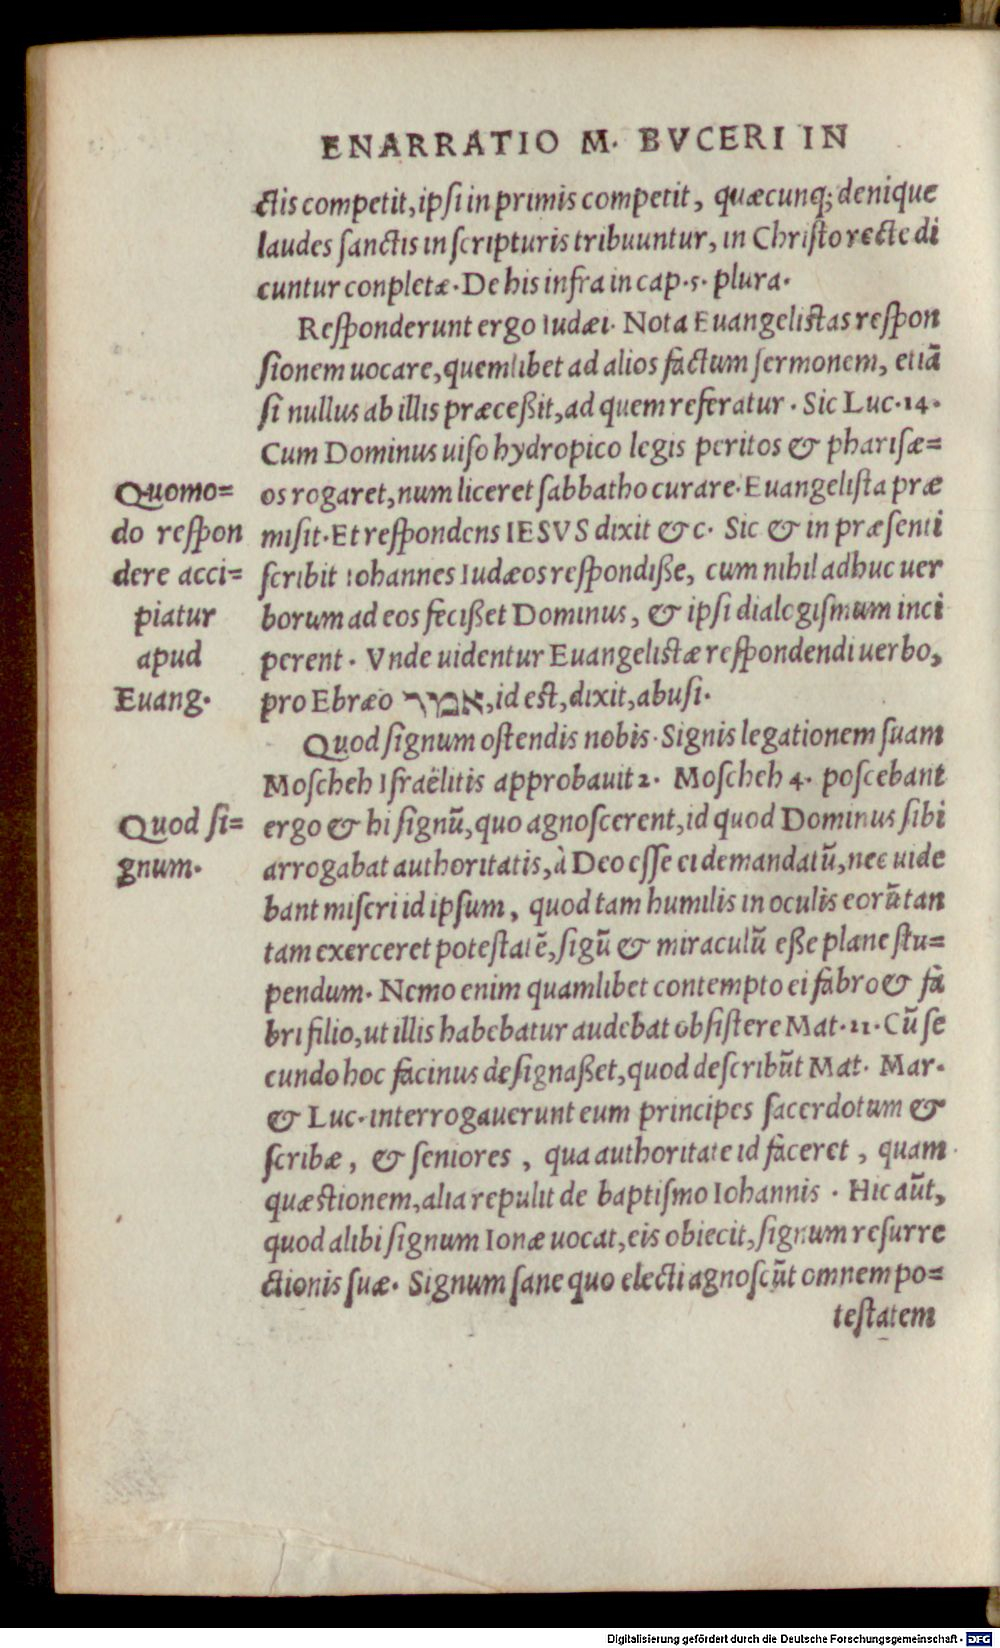 ENARRATIO M. BVCERI IN
ctis competit, ipsi in primis competit, quæcunq; denique
laudes sanctis in scripturis tribuuntur, in Christo recte di
cuntur conpletæ. De his infra in cap. 5. plura.
Responderunt ergo Iudæi. Nota Euangelistas respon
sionem uocare, quemlibet ad alios factum sermonem, etiā
si nullus ab illis præceßit, ad quem referatur. Sic Luc. 14.
Cum Dominus uiso hydropico legis peritos & pharisæ=
os rogaret, num liceret sabbatho curare. Euangelista præ
misit. Et respondens IESVS dixit & c. Sic & in præsenti
scribit Iohannes Iudæos respondiße, cum nihil adhuc uer
borum ad eos fecißet Dominus, & ipsi dialogismum inci
perent. Vnde uidentur Euangelistæ respondendi uerbo,
pro Ebræo אמר, id est, dixit, abusi.
Quomo=
do respon
dere acci=
piatur
apud
Euang.
Quod signum ostendis nobis. Signis legationem suam
Moscheh Israëlitis approbauit 2. Moscheh 4. poscebant
ergo & hi signū, quo agnoscerent, id quod Dominus sibi
arrogabat authoritatis, à Deo esse ei demandatū, nec uide
bant miseri id ipsum, quod tam humilis in oculis eorū tan
tam exerceret potestatē, sigū & miraculū eße plane stu=
pendum. Nemo enim quamlibet contempto ei fabro & fa
bri filio, ut illis habebatur audebat obsistere Mat. 21. Cū se
cundo hoc facinus designaßet, quod describūt Mat. Mar.
& Luc. interrogauerunt eum principes sacerdotum &
scribæ, & seniores, qua authoritate id faceret, quam
quæstionem, alia repulit de baptismo Iohannis. Hic aūt,
quod alibi signum Ionæ uocat, eis obiecit, signum resurre
ctionis suæ. Signum sane quo electi agnoscūt omnem po=
testatem
Quod si=
gnum.
Digitalisierung gefördert durch die Deutsche Forschungsgemeinschaft - DFG